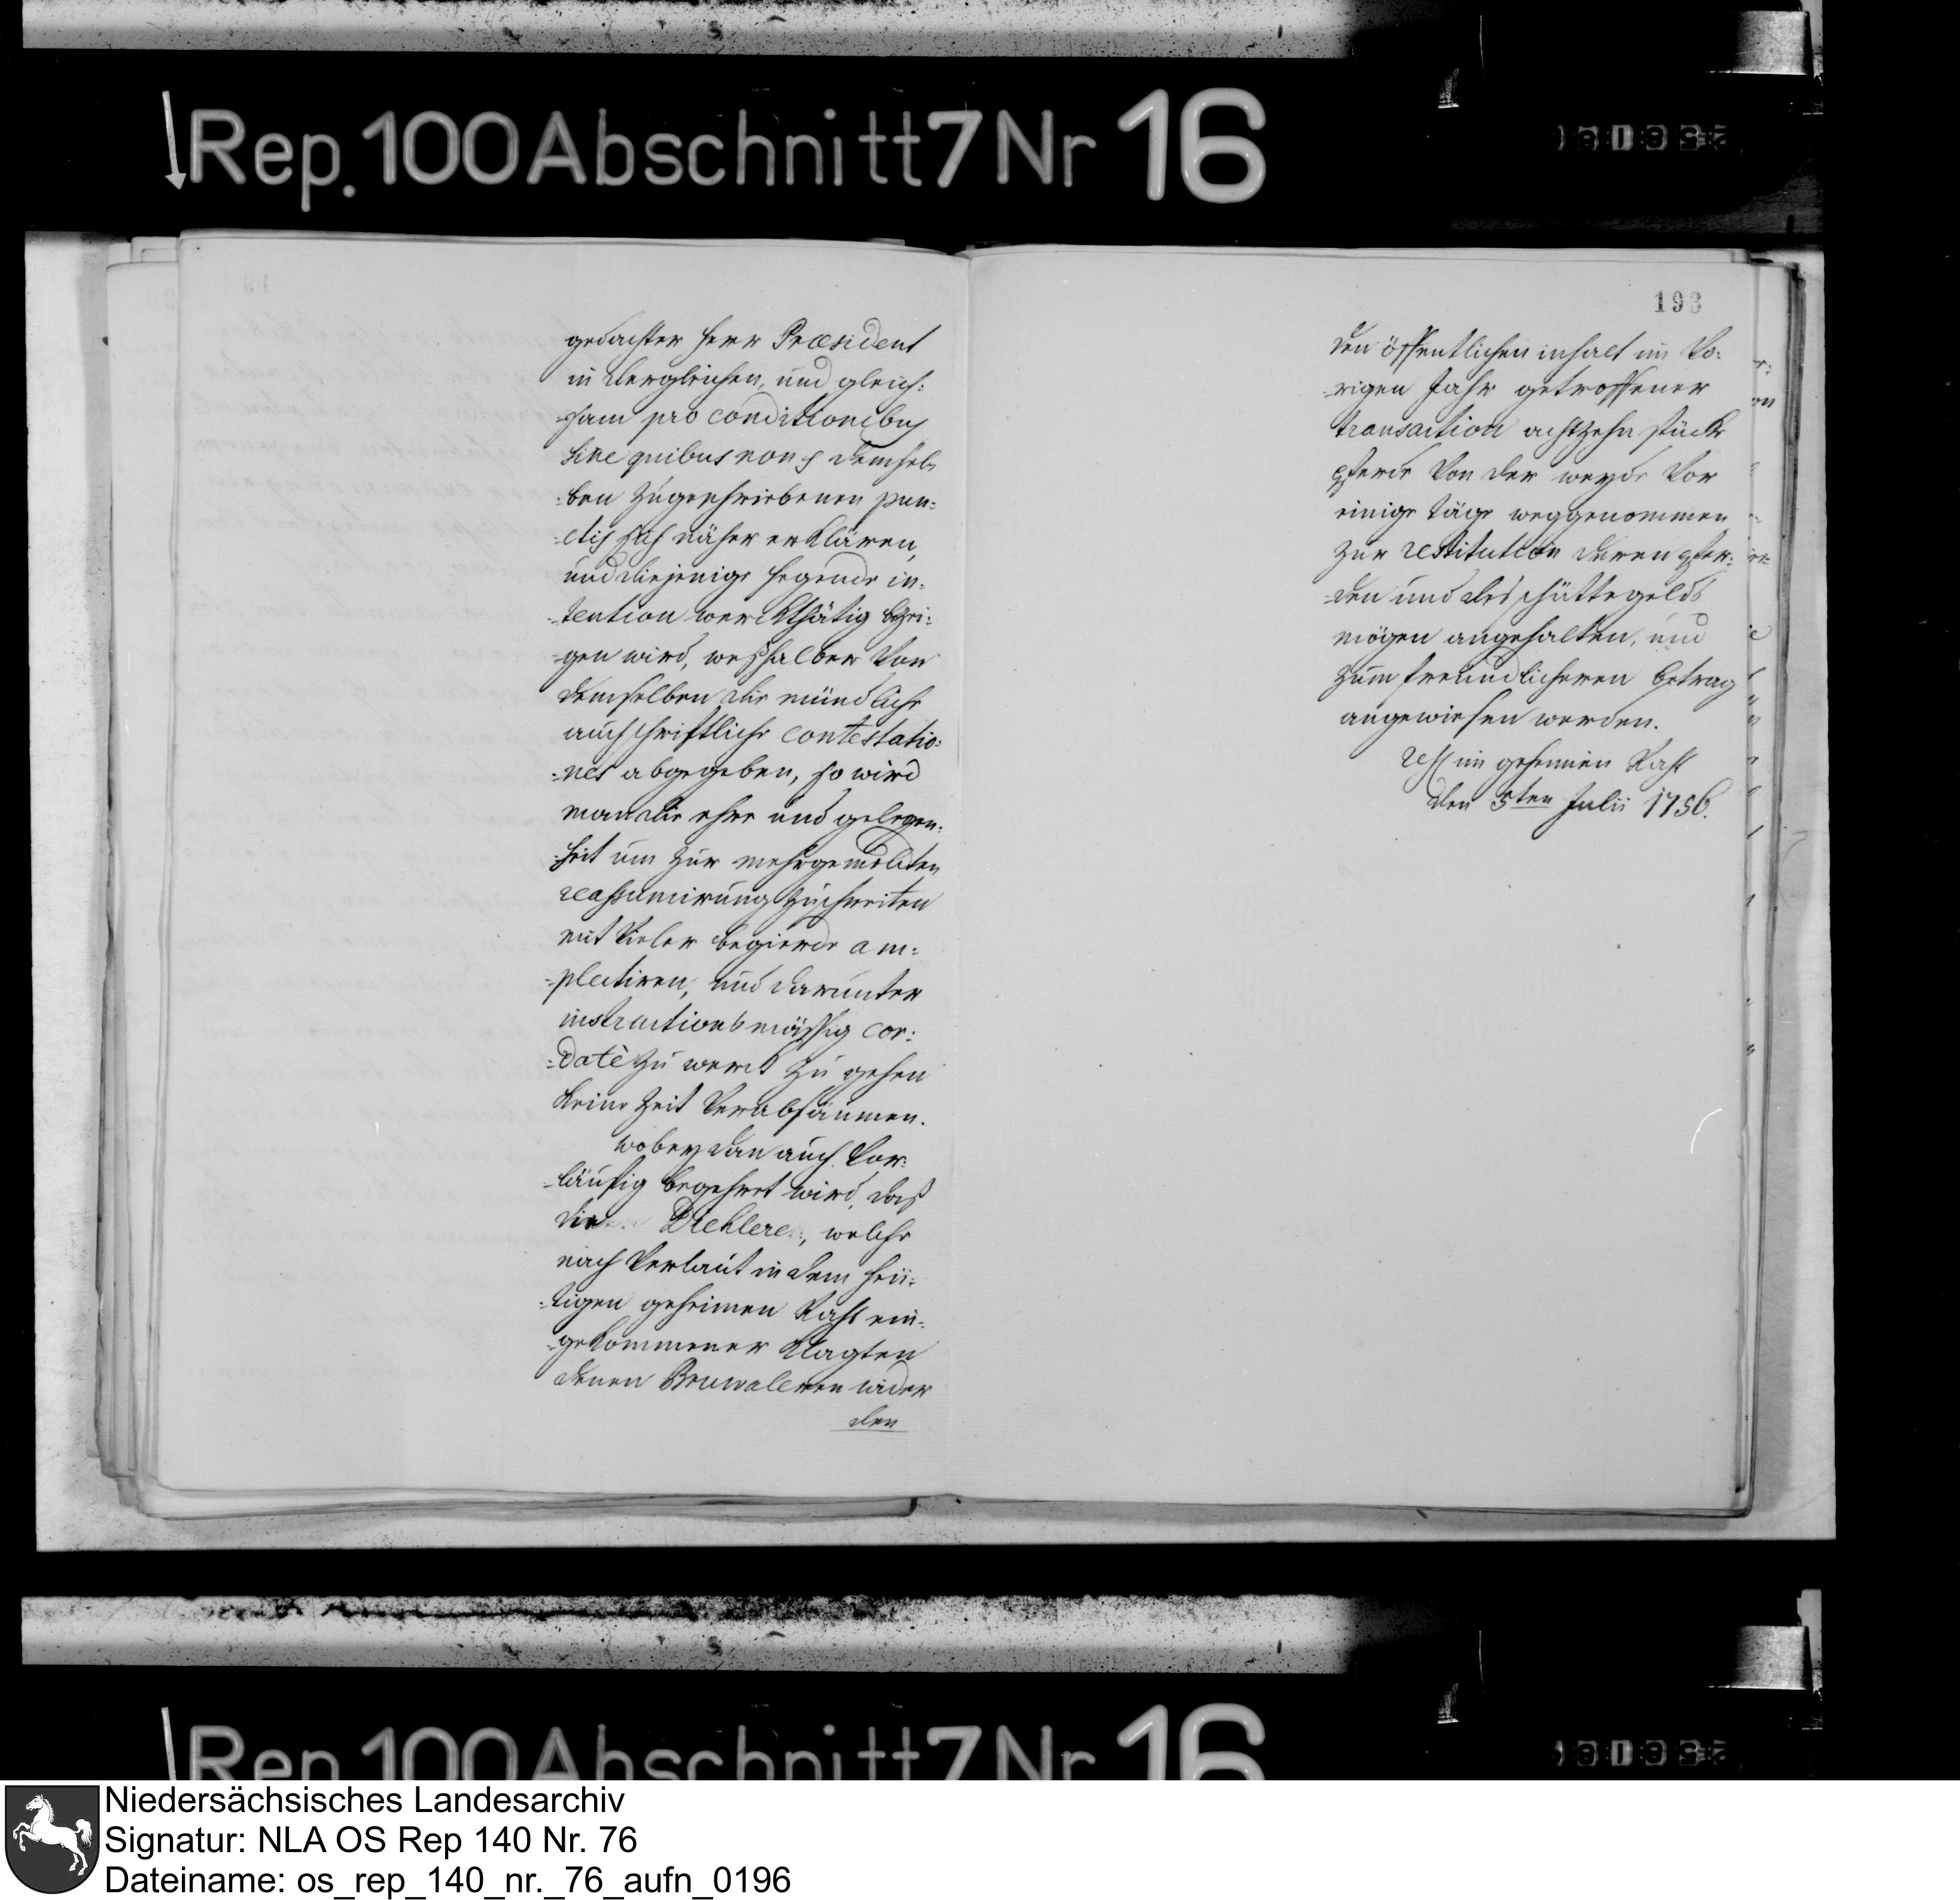 Rep.100Abschnitt7Nr 16
gedachter herr Præsident
in dergleichen, und gleich:
-sam pro conditionibus
sine quibus non, demsel-
-ben zugeschriebenen pun:
-ctis sich näher erklären,
und diejenige hegende in:
-tention werckthätig bezei:
-gen wird, weßhalber von
demselben die mündliche
auch schriftliche contestatio:
-nes abgegeben, so wird
man die ehre und gelegen:
-heit um zur mehrgemelten
reassumirung zuschreiten
mit vieler begierde am:
-plectiren, und darunter
instructionsmässig cor:
-datè zu werck zu gehen
keine Zeit verabsäumen.
wobey dan auch vor:
-läufig begehret wird, daß
die Diehleren, welche
nach verlaut in dem heü:
-tigen geheimen Raht ein:
-gekommener klagten
denen wider
den
193
den öffentlichen inhalt im vo:
-rigen Jahr getroffener
transaction achtzehn stück
pferde von der weyde vor
einige täge weggenommen
zur restitution deren pfer:
-den und des schüttegelds
mögen angehalten, und
zum freundlicheren betrag
angewiesen werden.
im geheimen Raht
den 5ten Julii 1756.
Rep.100Abschnitt7Nr 16
Niedersächsisches Landesarchiv
Signatur: NLA OS Rep 140 Nr. 76
Dateiname: os_rep_140_nr._76_aufn_0196